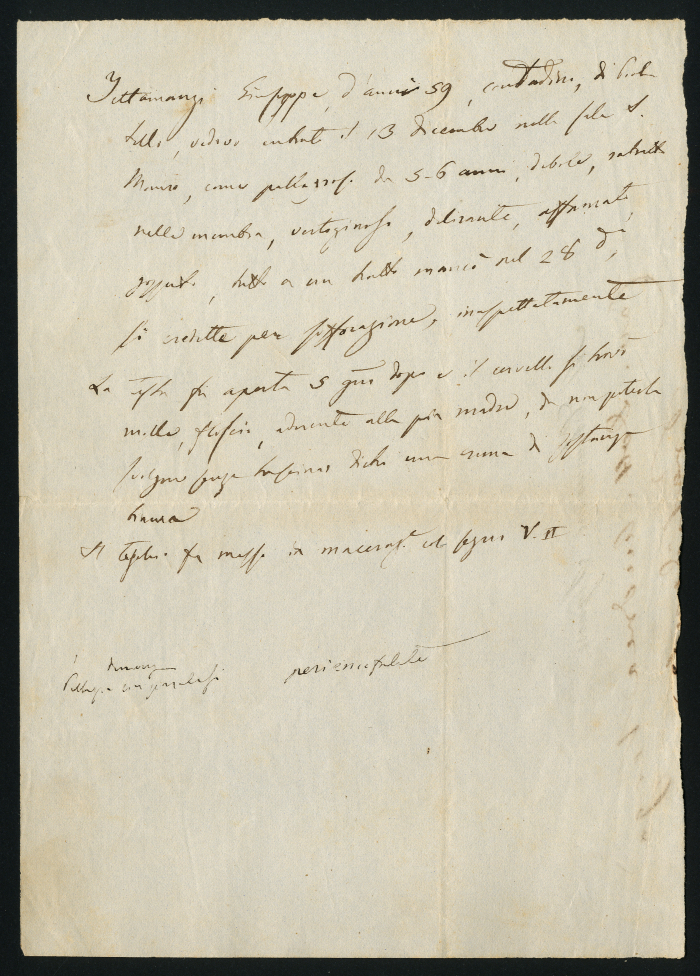 Tettamanzi Giuseppe, d'anni 59, contadino, di
tello, vedovo entrato il 13 dicembre nella sala S.
Mauro, come pellagroso da 5-6 anni, debole,
nelle membra, vertiginoso, delirante, affannato,
tutto a un tratto mancò nel 28 dº,
si credette per soffocazione, inaspettatamente
La testa fu aperta 5 gni dopo e il cervello si trovò
molle, floscio, aderente alla pia madre, da non potersi
svolgere senza trascinar dietro una crema di sostanza
Il teschio fu messo in maceraz.e col segno V. II
Pellagra con paralisi
periencefalite